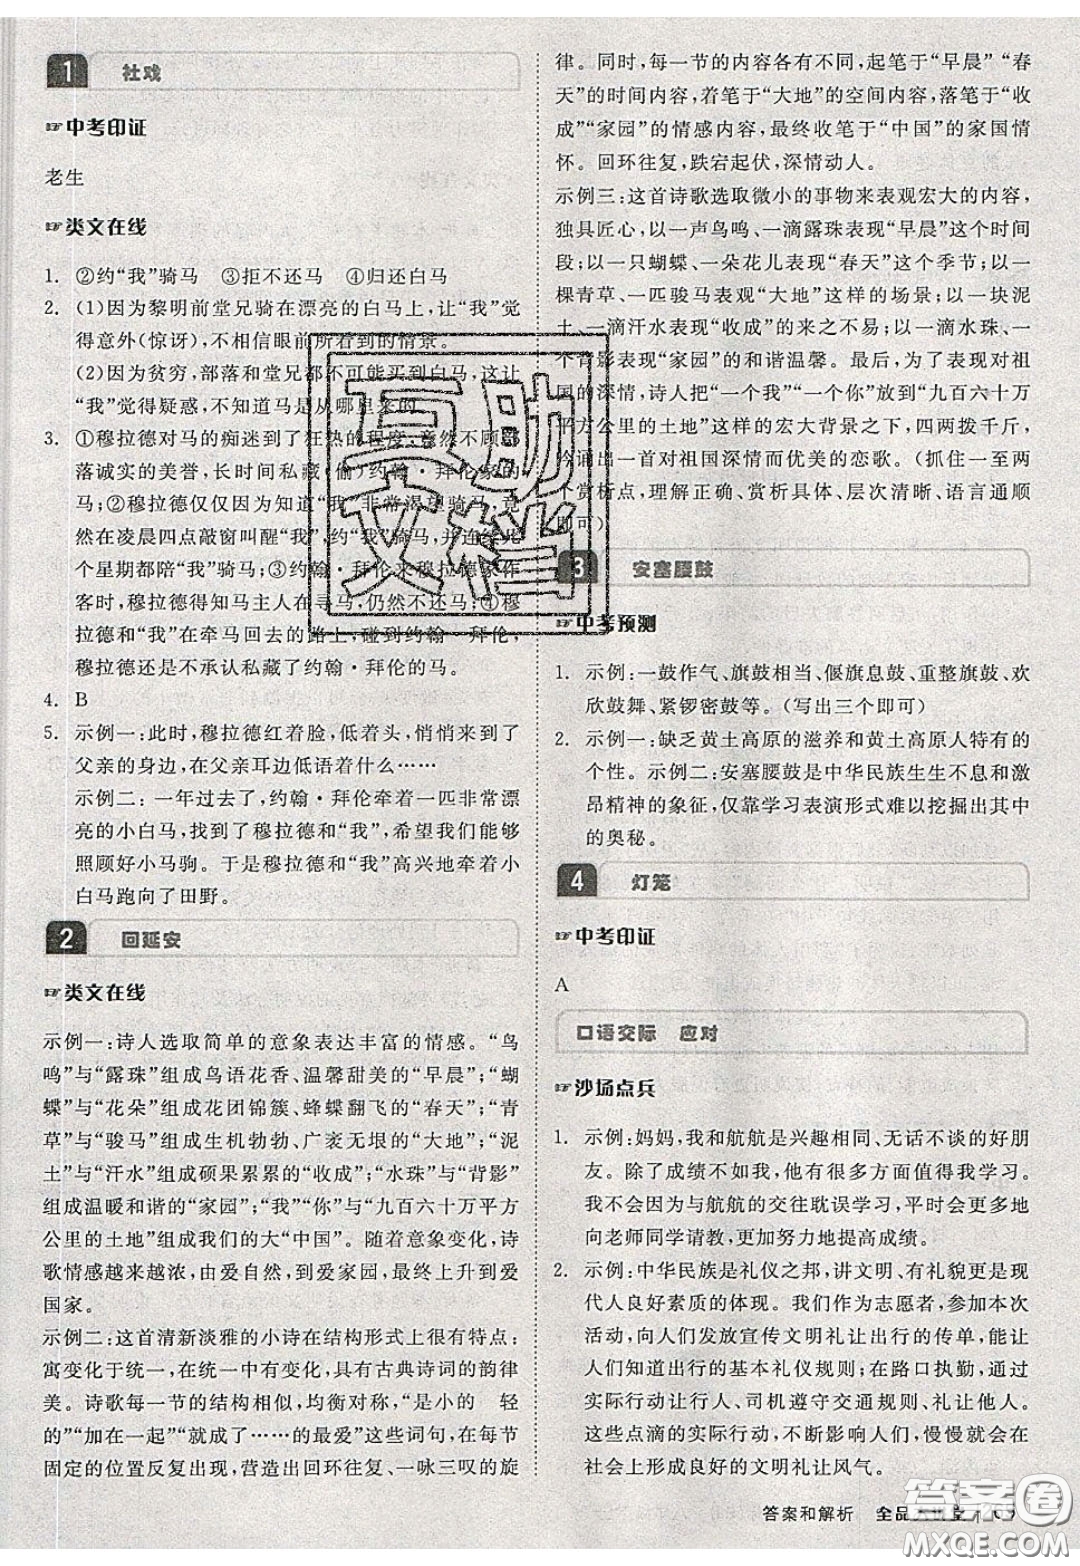 1 社戏
☞中考印证
老生
☞类文在线
1. ②约“我”骑马　③拒不还马　④归还白马
2. (1)因为黎明前堂兄骑在漂亮的白马上,让“我”觉
得意外(惊讶),不相信眼前所看到的情景。
(2)因为贫穷,部落和堂兄都不可能买到白马,这让
“我”觉得疑惑,不知道马是从哪里来的。
3. ①穆拉德对马的痴迷到了狂热的程度,竟然不顾部
落诚实的美誉,长时间私藏(偷)约翰·拜伦家的
马;②穆拉德仅仅因为知道“我”非常渴望骑马,竟
然在凌晨四点敲窗叫醒“我”,约“我”骑马,并连续几
个星期都陪“我”骑马;③约翰·拜伦来穆拉德家作
客时,穆拉德得知马主人在寻马,仍然不还马;④穆
拉德和“我”在牵马回去的路上,碰到约翰·拜伦,
穆拉德还是不承认私藏了约翰·拜伦的马。
4. B
5. 示例一:此时,穆拉德红着脸,低着头,悄悄来到了
父亲的身边,在父亲耳边低语着什么……
示例二:一年过去了,约翰·拜伦牵着一匹非常漂
亮的小白马,找到了穆拉德和“我”,希望我们能够
照顾好小马驹。于是穆拉德和“我”高兴地牵着小
白马跑向了田野。
2 回延安
☞类文在线
示例一:诗人选取简单的意象表达丰富的情感。“鸟
鸣”与“露珠”组成鸟语花香、温馨甜美的“早晨”;“蝴
蝶”与“花朵”组成花团锦簇、蜂蝶翻飞的“春天”;“青
草”与“骏马”组成生机勃勃、广袤无垠的“大地”;“泥
土”与“汗水”组成硕果累累的“收成”;“水珠”与“背影”
组成温暖和谐的“家园”;“我”“你”与“九百六十万平方
公里的土地”组成我们的大“中国”。随着意象变化,诗
歌情感越来越浓,由爱自然,到爱家园,最终上升到爱
国家。
示例二:这首清新淡雅的小诗在结构形式上很有特点:
寓变化于统一,在统一中有变化,具有古典诗词的韵律
美。诗歌每一节的结构相似,均衡对称,“是小的　轻
的”“加在一起”“就成了……的最爱”这些词句,在每节
固定的位置反复出现,营造出回环往复、一咏三叹的旋
律。同时,每一节的内容各有不同,起笔于“早晨”“春
天”的景物内容,着笔于“大地”的景观内容,落笔于“收
成”“家园”的情感内容,最终收笔于“中国”的家国情
怀。回环往复,跌宕起伏,深情动人。
示例三:这首诗歌选取微小的事物来表观宏大的内容,
独具匠心,以一声鸟鸣、一滴露珠表现“早晨”这一时间
段;以一只蝴蝶、一朵花儿表现“春天”这个季节;以一
棵青草、一匹骏马表观“大地”这样的场景;以一块泥
土、一滴汗水表现“收成”的来之不易;以一滴水珠、一
个背影表现“家园”的和谐温馨。最后,为了表现对祖
国的深情,诗人把“一个我”“一个你”放到“九百六十万
平方公里的土地”这样的宏大背景之下,四两拨千斤,
吟诵出一首对祖国深情而优美的恋歌。(抓住一至两
个赏析点,理解正确、赏析具体、层次清晰、语言通顺
即可)
3 安塞腰鼓
☞中考预测
1. 示例:一鼓作气、旗鼓相当、偃旗息鼓、重整旗鼓、欢
欣鼓舞、紧锣密鼓等。(写出三个即可)
2. 示例一:缺乏黄土高原的滋养和黄土高原人特有的
个性。示例二:安塞腰鼓是中华民族生生不息和激
昂精神的象征,仅靠学习表演形式难以挖掘出其中
的奥秘。
4 灯笼
☞中考印证
A
口语交际　应对
☞沙场点兵
1. 示例:妈妈,我和航航是兴趣相同、无话不谈的好朋
友。除了成绩不如我,他有很多方面值得我学习。
我不会因为与航航的交往耽误学习,平时会更多地
向老师同学请教,更努力地提高成绩。
2. 示例:中华民族是礼仪之邦,讲文明、有礼貌更是现
代人良好素质的体现。我们作为志愿者,参加本次
活动,向人们发放宣传文明礼让出行的传单,能让
人们知道出行的基本礼仪规则;在路口执勤,通过
实际行动让行人、司机遵守交通规则、礼让他人。
这些点滴的实际行动,能影响人们,慢慢就会在
社会上形成良好的文明礼让风气。
互助
文档
答案和解析　全品
答案圈
MXQE.COM